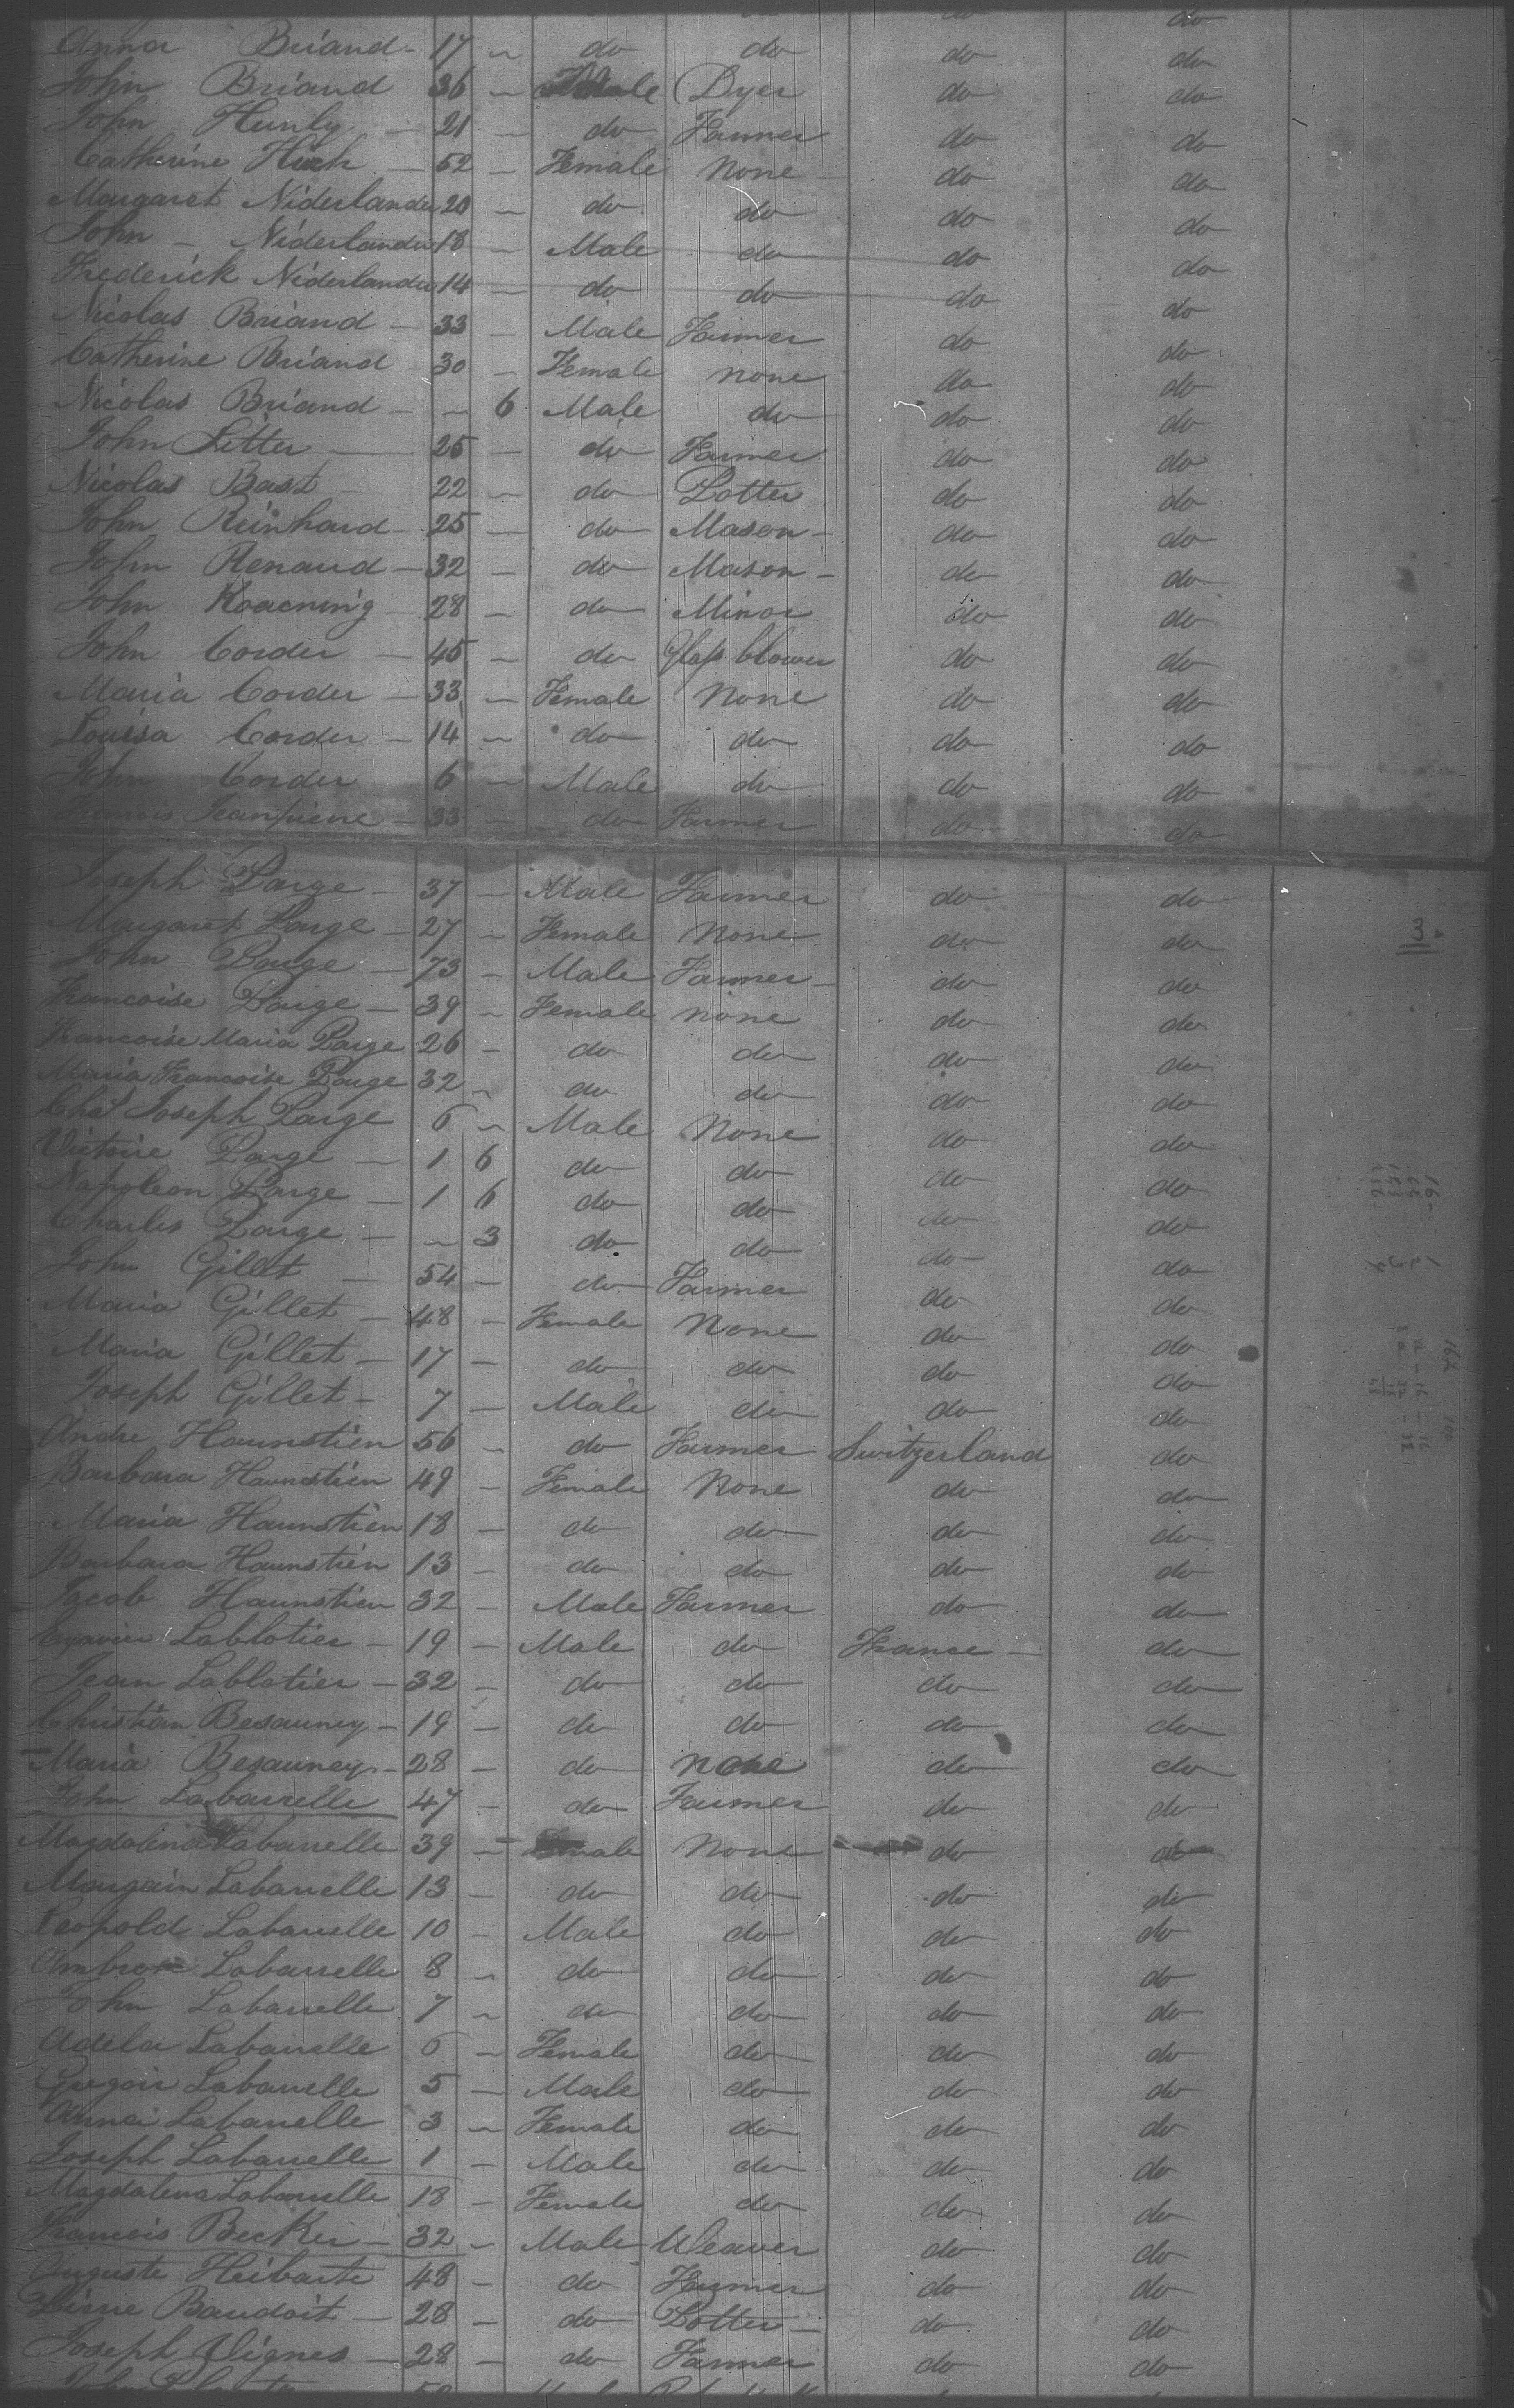 do do
Anna Briand - 17 - do do do do
John Briand 36 - Male Dyer do do
John Hunly - 21 - do Farmer do do
Catherine Huch - 52 - Female None do do
Margaret Niderlander 20 - do do do do
John - Niderlander 18 - Male do do do
Frederick Niderlander 14 - do do do do
Nicolas Briand - 33 - Male Farmer do do
Catherine Briand - 30 - Female none do do
Nicolas Briand - - 6 Male do do do
John Litter - 25 - do Farmer do do
Nicolas Bast 22 - do Potter do do
John Reinhard - 25 - do Mason - do do
John Renaud - 32 - do Mason - do do
John Koacning - 28 - do Minor do do
John Corder - 45 - do Glass blower do do
Maria Corder - 33 - Female None do do
Louisa Corder - 14 - do do do do
John Corder 6 - Male do do do
Francis Jeanpierre - 33 - do Farmer do do
Joseph Parge - 37 - Male Farmer do do
Margaret Parge - 27 - Female None do do
John Parge - 73 - Male Farmer - do do
Francoise Parge - 39 - Female none do do
Francoise Maria Parge 26 - do do do do
Maria Francoise Parge 32 - do do do do
Chas Joseph Parge 6 - Male None do do
Victoire Parge - 1 6 do do do do
Napoleon Parge - 1 6 do do do do
Charles Parge - - 3 do do do do
John Gillet - 54 - do Farmer do do
Maria Gillet - 48 - Female None do do
Maria Gillet - 17 - do do do do
Joseph Gillet - 7 - Male do do do
Andre Haunstien 56 - do Farmer Switzerland do
Barbara Haunstien 49 - Female None do do
Maria Haunstien 18 - do do do do
Barbara Haunstien 13 - do do do do
Jacob Haunstien 32 - Male Farmer do do
Exavier Lablotier - 19 - Male do France - do
Jean Lablotier - 32 - do do do do
Christian Besauney - 19 - do do do do
Maria Besauney - 28 - do None do do
John Labarrelle 47 - do Farmer do do
Magdalena Labarrelle 39 - Female None do do
Margain Labarrelle 13 - do do do do
Leopold Labarrelle 10 - Male do do do
Ambrose Labarrelle 8 - do do do do
John Labarrelle 7 - do do do do
Adela Labarrelle 6 - Female do do do
Gregoir Labarrelle 5 - Male do do do
Anna Labarrelle 3 - Female do do do
Joseph Labarrelle 1 - Male do do do
Magdalena Labarrelle 18 - Female do do do
Francois Becker - 32 - Male Weaver do do
Auguste Heibarte 48 - do Farmer do do
Pierre Baudoit - 28 - do Potter - do do
Joseph Vignes - 28 - do Farmer do do
3.